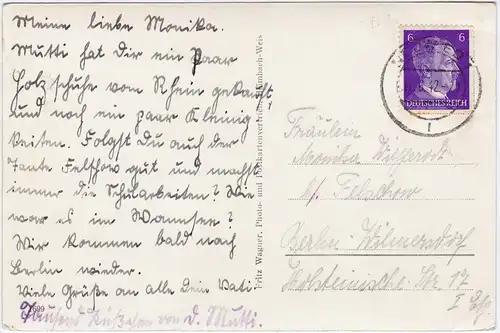 Meine liebe Monika.
Mutti hat dir ein paar
Holzschuhe vom Rhein gekauft,
und noch ein paar Kleinig
keiten. Folgst du auch der
Tante Felschow gut und machst
immer die Schularbeiten? Wie
war es im Wannsee?
Wir kommen bald nach
Berlin wieder.
Viele Grüße an alle Dein Vati.
Tausend Küßchen von d. Mutti.
Fritz Wagner, Photo- und Postkartenvertrieb,
6 6
DEUTSCHES REICH
Fräulein
Monika
b/ Felschow
Berlin-Wilmersdorf
Holsteinische Str. 17
I